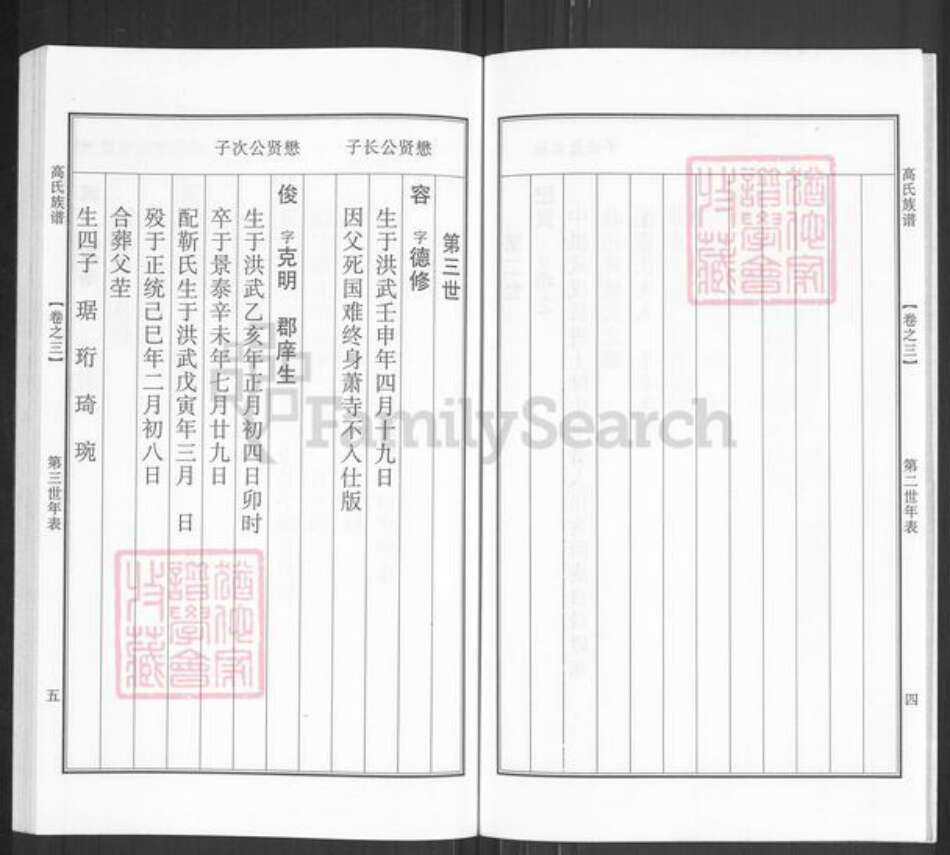 高氏族谱
【卷之三】
第二世年表
四
第三世
懋贤公长子
容 字德修
生于洪武壬申年四月十九日
因父死国难终身萧寺不入仕版
懋贤公次子
俊 字克明 郡庠生
生于洪武乙亥年正月初四日卯时
卒于景泰辛未年七月廿九日
配靳氏生于洪武戊寅年三月 日
殁于正统己巳年二月初八日
合葬父茔
生四子 琚 珩 琦 琬
高氏族谱
【卷之三】
第三世年表
五
猶他家
譜學會
收藏
猶他家
譜學會
收藏
FamilySearch